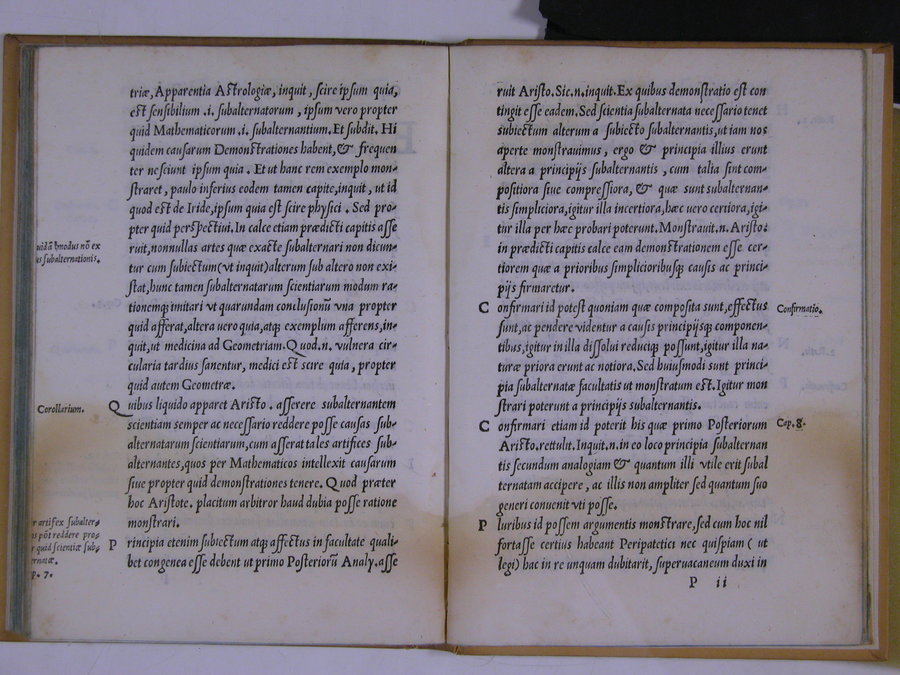 triæ, Apparentia Astrologiæ, inquit, scire ipsum quia,
est sensibilium .i. subalternatorum , ipsum vero propter
quid Mathematicorum .i. subalternantium. Et subdit. Hi
quidem causarum Demonstrationes habent, & frequen
ter nesciunt ipsum quia . Et ut hanc rem exemplo mon-
straret, paulo inferius eodem tamen capite, inquit, ut id
quod est de Iride, ipsum quia est scire physici . Sed pro-
pter quid perspectiui. In calce etiam prædicti capitis asse
ruit, nonnullas artes quæ exacte subalternari non dicun-
tur cum subiectum (vt inquit) alterum sub altero non exi-
stat, hunc tamen subalternatarum scientiarum modum ra-
tionemq; imitari vt quarundam conclusionū vna propter
quid afferat, altera uero quia, atq; exemplum afferens, in-
quit, ut medicina ad Geometriam. Quod .n. vulnera cir-
cularia tardius sanentur, medici est scire quia , propter
quid autem Geometræ.
Quibus liquido apparet Aristo . asserere subalternantem
scientiam semper ac necessario reddere posse causas sub-
alternatarum scientiarum, cum asserat tales artifices sub-
alternantes, quos per Mathematicos intellexit causarum
siue propter quid demonstrationes tenere. Quod præter
hoc Aristote. placitum arbitror haud dubia posse ratione
monstrari.
Principia etenim subiectum atq; affectus in facultate quali-
bet congenea esse debent ut primo Posteriorū Analy. asse
modus nō ex
subalternationis.
Corollarium.
artifex subalter-
pōt reddere pro-
quid scientiæ sub-
p. 7.
ruit Aristo. Sic .n. inquit. Ex quibus demonstratio est con
tingit esse eadem. Sed scientia subalternata necessario tenet
subiectum alterum a subiecto subalternantis, ut iam nos
aperte monstrauimus , ergo & principia illius erunt
altera a principijs subalternantis , cum talia sint com-
positiora siue compressiora, & quæ sunt subalternan-
tis simpliciora, igitur illa incertiora, hæc vero certiora, igi-
tur illa per hæc probari poterunt. Monstrauit .n. Aristo:
in prædicti capitis calce eam demonstrationem esse cer-
tiorem quæ a prioribus simplicioribusq; causis ac princi-
pijs firmaretur.
Confirmari id potest quoniam quæ composita sunt, effectus
sunt, ac pendere videntur a causis principijsq; componen-
tibus, igitur in illa dissolui reduciq; possunt, igitur illa na-
turæ priora erunt ac notiora. Sed huiusmodi sunt princi-
pia subalternatæ facultatis ut monstratum est. Igitur mon
strari poterunt a principijs subalternantis.
Confirmari etiam id poterit his quæ primo Posteriorum
Aristo. rettulit. Inquit .n. in eo loco principia subalternan
tis secundum analogiam & quantum illi vtile erit subal
ternatam accipere , ac illis non ampliter sed quantum suo
generi conuenit vti posse.
Pluribus id possem argumentis monstrare, sed cum hoc nil
fortasse certius habeant Peripatetici nec quispiam ( ut
legi) hac in re unquam dubitarit, superuacaneum duxi in
P ii
Confirmatio.
Cap. 8.